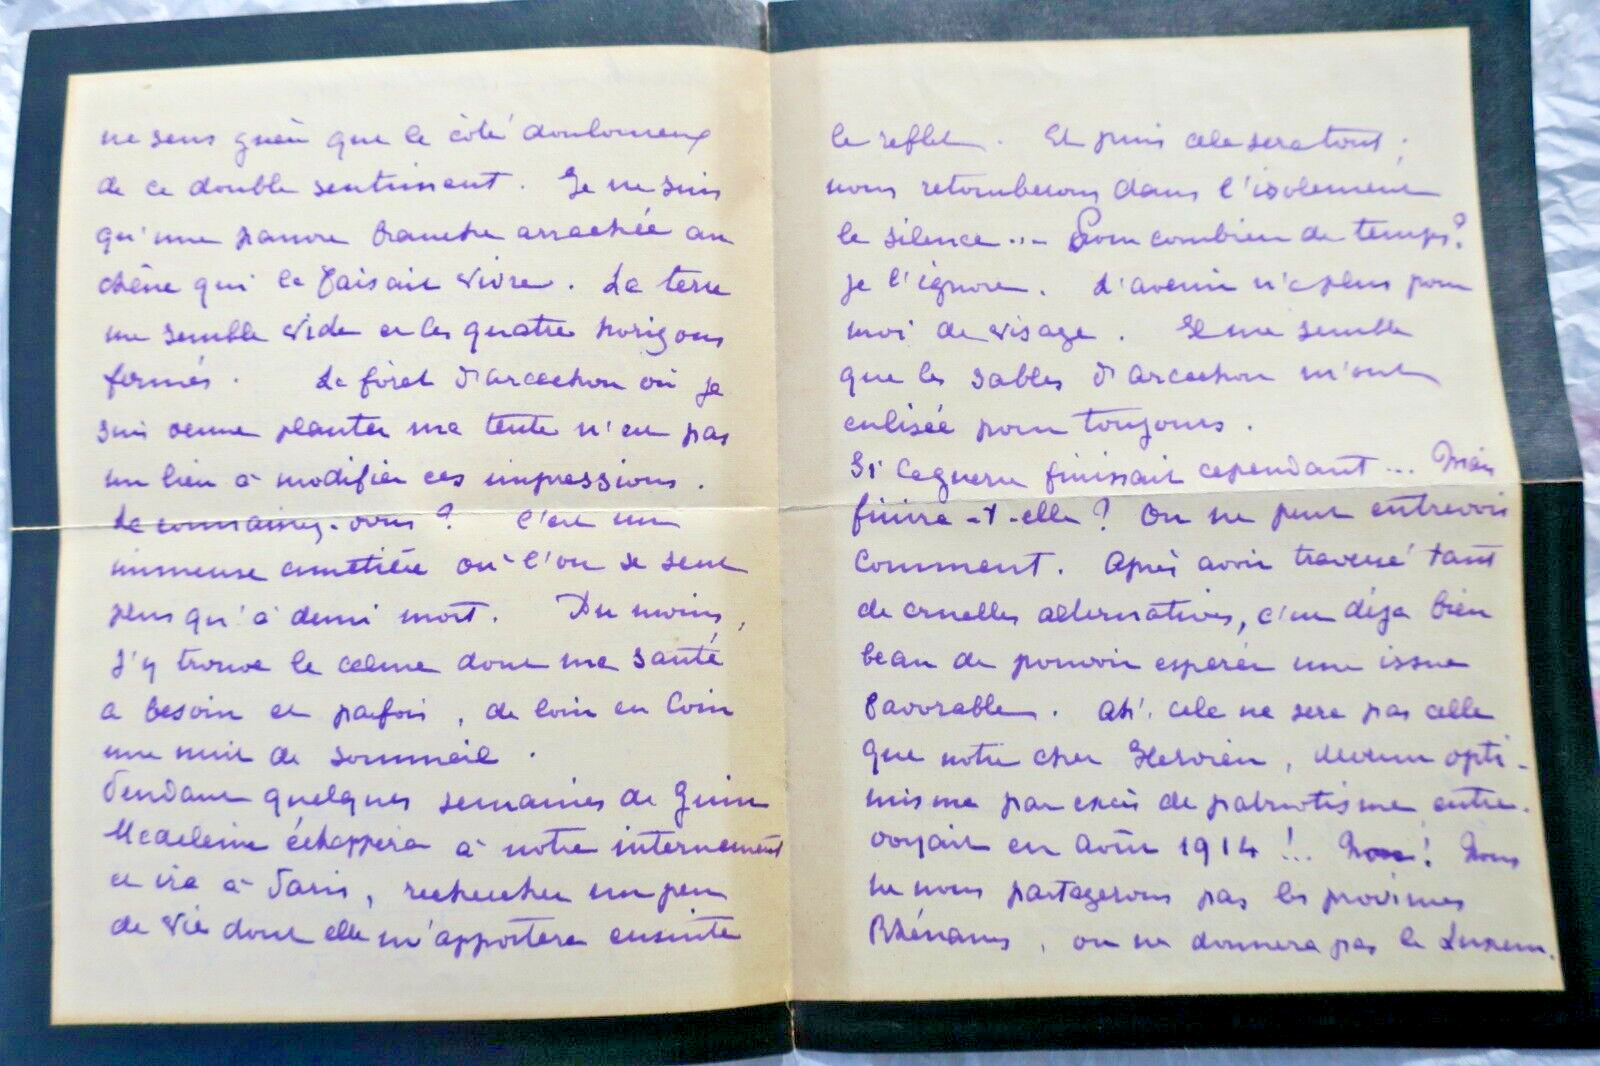 ne sens guère que le côté douloureux
de ce double sentiment. Je ne suis
qu'une pauvre branche arrachée au
chêne qui la faisait vivre. La terre
me semble vide et les quatre horizons
fermés. La forêt d'Arcachon où je
suis venue planter ma tente n'est pas
un lieu à modifier ces impressions.
La connaissez-vous ? C'est un
immense cimetière où l'on se sent
plus qu'à demi mort. Du moins,
j'y trouve le calme dont ma santé
a besoin et parfois, de loin en loin
une nuit de sommeil.
Pendant quelques semaines de Juin
Madeleine échappera à notre internement
et ira à Paris, rechercher un peu
de vie dont elle m'apportera ensuite
le reflet. Et puis cela sera tout;
nous retomberons dans l'isolement
le silence... Pour combien de temps?
je l'ignore. L'avenir n'a plus pour
moi de visage. Il me semble
que les sables d'Arcachon m'ont
enlisée pour toujours.
Si la guerre finissait cependant... Mais
finira-t-elle ? On ne peut entrevoir
comment. Après avoir traversé tant
de cruelles alternatives, c'est déjà bien
beau de pouvoir espérer une issue
favorable. Ah! cela ne sera pas celle
que notre cher Hervieu, devenu opti-
misme par excès de patriotisme entre-
voyait en août 1914 !.. Non! Nous
ne nous partagerons pas les provinces
Rhénanes, on ne donnera pas le Luxem-